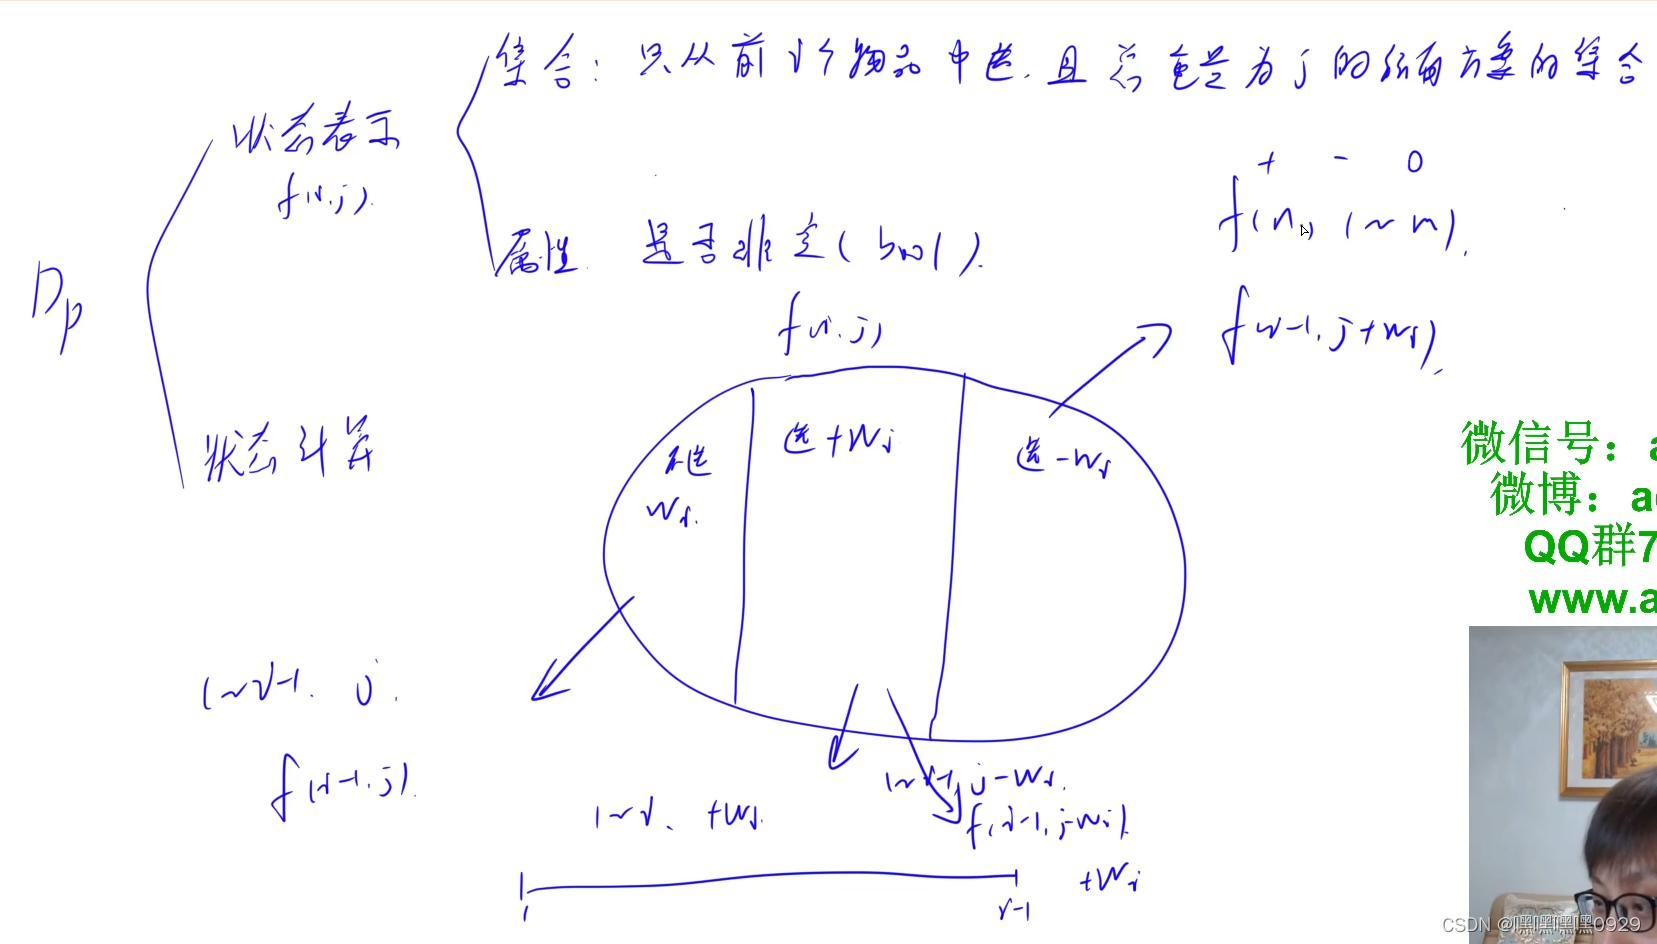 集合: 只从前i个物品中选, 且总重量为j的所有方案的集合
状态表示
f(i,j).
+ - 0
f(n, 1~m),
属性 是否非空(bool).
Dp
f(i,j)
f(i-1, j+wi),
状态计算
不选 wi.
选+wi
选-wi
微信号: a
微博: a
QQ群7
www.a
1~i-1. j.
f(i-1,j).
1~i-1, j-wi.
1~i. +wi.
f(i-1,j-wi).
+wi
1 i-1
CSDN @嘿嘿嘿嘿0929